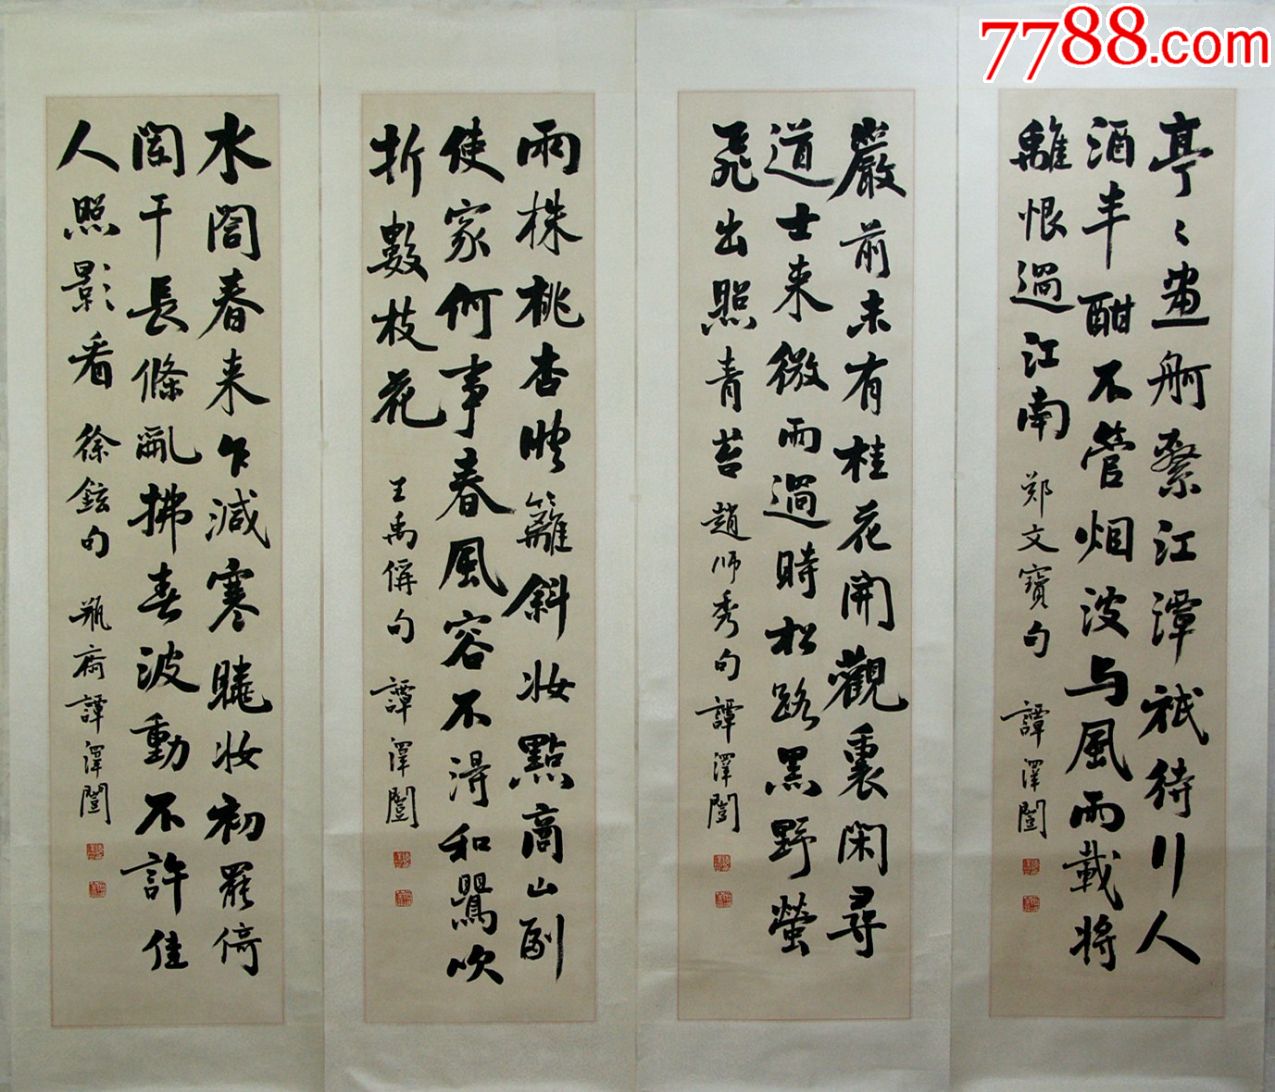 7788.com
亭〻畫舸繫江潭祇待行人
酒半酣不管烟波与風雨載將
離恨過江南 鄭文寶句 譚澤闓
巖前未有桂花開觀裏闲尋
道士来微雨過時松路黑野螢
飛出照青苔 趙师秀句 譚澤闓
兩株桃杏映籬斜妆點商山副
使家何事春風容不得和鶯吹
折數枝花 王禹偁句 譚澤闓
水閣春来乍減寒曉妆初罷倚
闌干長條亂拂春波動不許佳
人照影看 徐鉉句 瓶齋譚澤闓